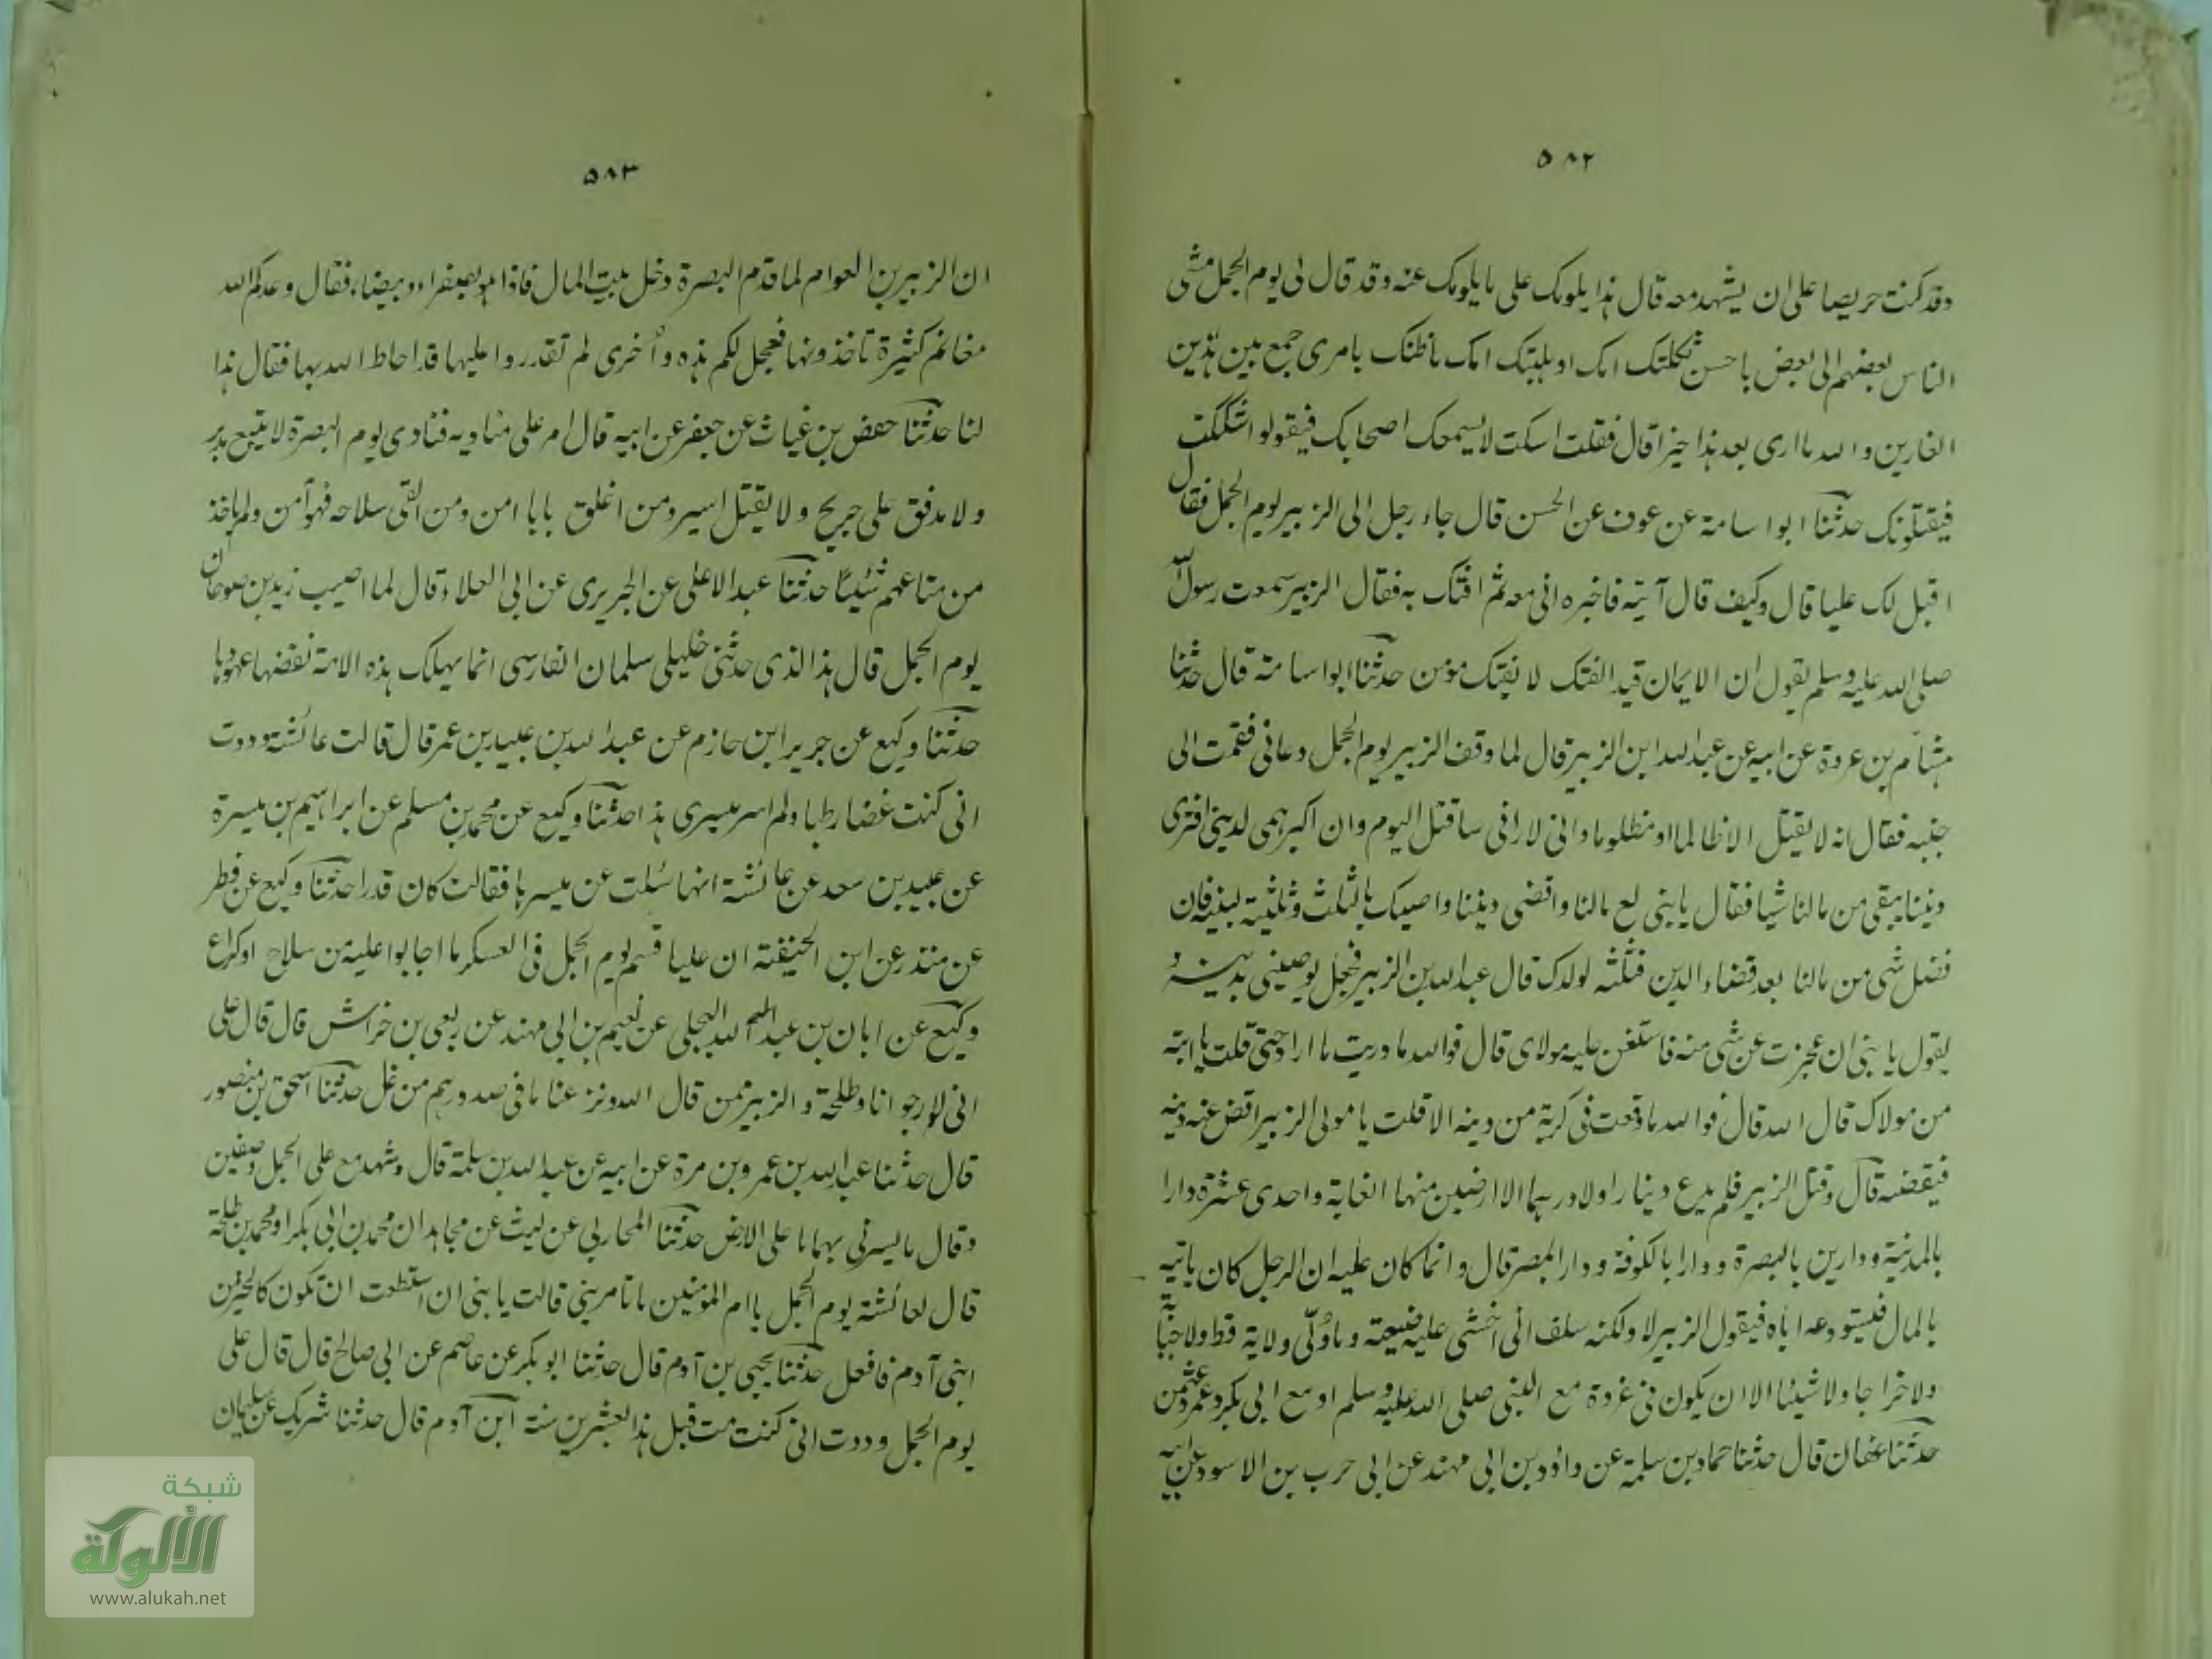 ٥٨٢
وقد كنت حريصا على ان يشهد معه قال هذا يلومك على ما يلومك عنه وقد قال لى يوم الجمل مشى
الناس بعضهم الى بعض يا حسن ثكلتك امك او هبلتك امك ما ظنك بامرى جمع بين هذين
الغارين والله ما ارى بعد هذا خيرا قال فقلت اسكت لا يسمعك اصحابك فيقولوا شككت
فيقتلونك حدثنا ابو اسامة عن عوف عن الحسن قال جاء رجل الى الزبير يوم الجمل فقال
اقبل لك عليا قال وكيف قال آتيه فاخبره انى معه ثم افتك به فقال الزبير سمعت رسول الله
صلى الله عليه وسلم يقول ان الايمان قيد الفتك لا يفتك مؤمن حدثنا ابو اسامة قال حدثنا
هشام بن عروة عن ابيه عن عبد الله ابن الزبير قال لما وقف الزبير يوم الجمل دعانى فقمت الى
جنبه فقال انه لا يقتل الا ظالما او مظلوما وانى لارانى ساقتل اليوم وان اكبر همى لدينى افترى
ديننا يبقى من مالنا شيا فقال يا بنى بع مالنا واقضى ديننا واصيك بالثلث وثلثيه لبنيه فان
فضل شى من مالنا بعد قضاء الدين فثلثه لولدك قال عبد الله بن الزبير فجعل يوصينى بدينه و
يقول يا بنى ان عجزت عن شى منه فاستغن عليه مولاى قال فوالله ما دريت ما اراد حتى قلت يا ابته
من مولاك قال الله قال فوالله ما وقعت فى كربة من دينه الا قلت يا مولى الزبير اقض عنه دينه
فيقضه قال وقتل الزبير فلم يدع دينارا ولا درهما الا ارضين منها الغابة واحدى عشرة دارا
بالمدينة ودارين بالبصرة ودارا بالكوفة ودار المصر قال وانما كان عليه ان الرجل كان ياتيه
بالمال فيستودعه اياه فيقول الزبير لا ولكنه سلف انى اخشى عليه ضيعته وما ولى ولاية قط ولا جباية
ولا خراجا ولا شيئا الا ان يكون فى غزوة مع النبى صلى الله عليه وسلم او مع ابى بكر وعمر وعثمن
حدثنا عفان قال حدثنا حماد بن سلمة عن داؤد بن ابى هند عن ابى حرب بن الاسود عن ابيه
٥٨٣
ان الزبير بن العوام لما قدم البصرة دخل بيت المال فاذا هو بصفراء وبيضاء فقال وعدكم الله
مغانم كثيرة تاخذونها فعجل لكم هذه وأخرى لم تقدروا عليها قد احاط الله بها فقال هذا
لنا حدثنا حفص بن غياث عن جعفر عن ابيه قال امر على مناديه فنادى يوم البصرة لا يتبع مدبر
ولا مدفق على جريح ولا يقتل اسير ومن اغلق بابا امن ومن القى سلاحه فهو آمن ولم ياخذ
من متاعهم شيئا حدثنا عبد الاعلى عن الجريرى عن ابى العلاء قال لما اصيب زيد بن صوحان
يوم الجمل قال هذا الذى حدثنى خليلى سلمان الفارسى انما يهلك هذه الامة نقضها عهودها
حدثنا وكيع عن جرير ابن حازم عن عبد الله بن عبيد بن عمر قال قالت عائشة وددت
انى كنت غضا رطبا ولم اسر مسيرى هذا حدثنا وكيع عن محمد بن مسلم عن ابراهيم بن ميسرة
عن عبيد بن سعد عن عائشة انها سئلت عن مسيرها فقالت كان قدرا حدثنا وكيع عن فطر
عن منذر عن ابن الحنيفة ان عليا قسم يوم الجمل فى العسكر ما اجابوا عليه من سلاح او كراع
وكيع عن ابان بن عبد الله البجلى عن نعيم بن ابى هند عن ربعى بن خراش قال قال على
انى لارجو انا وطلحة والزبير ممن قال الله ونزعنا ما فى صدورهم من غل حدثنا اسحق بن منصور
قال حدثنا عبد الله بن عمرو بن مرة عن ابيه عن عبد الله بن سلمة قال وشهد مع على الجمل وصفين
وقال ما يسرنى بهما ما على الارض حدثنا المحاربى عن ليث عن مجاهد ان محمد بن ابى بكر او محمد بن طلحة
قال لعائشة يوم الجمل يا ام المؤمنين ما تامرينى قالت يا بنى ان استطعت ان تكون كالخير من
ابنى آدم فافعل حدثنا يحيى بن آدم قال حدثنا ابو بكر عن عاصم عن ابى صالح قال قال على
يوم الجمل وددت انى كنت مت قبل هذا بعشرين سنة ابن آدم قال حدثنا شريك عن سليمان
شبكة
الألوكة
www.alukah.net